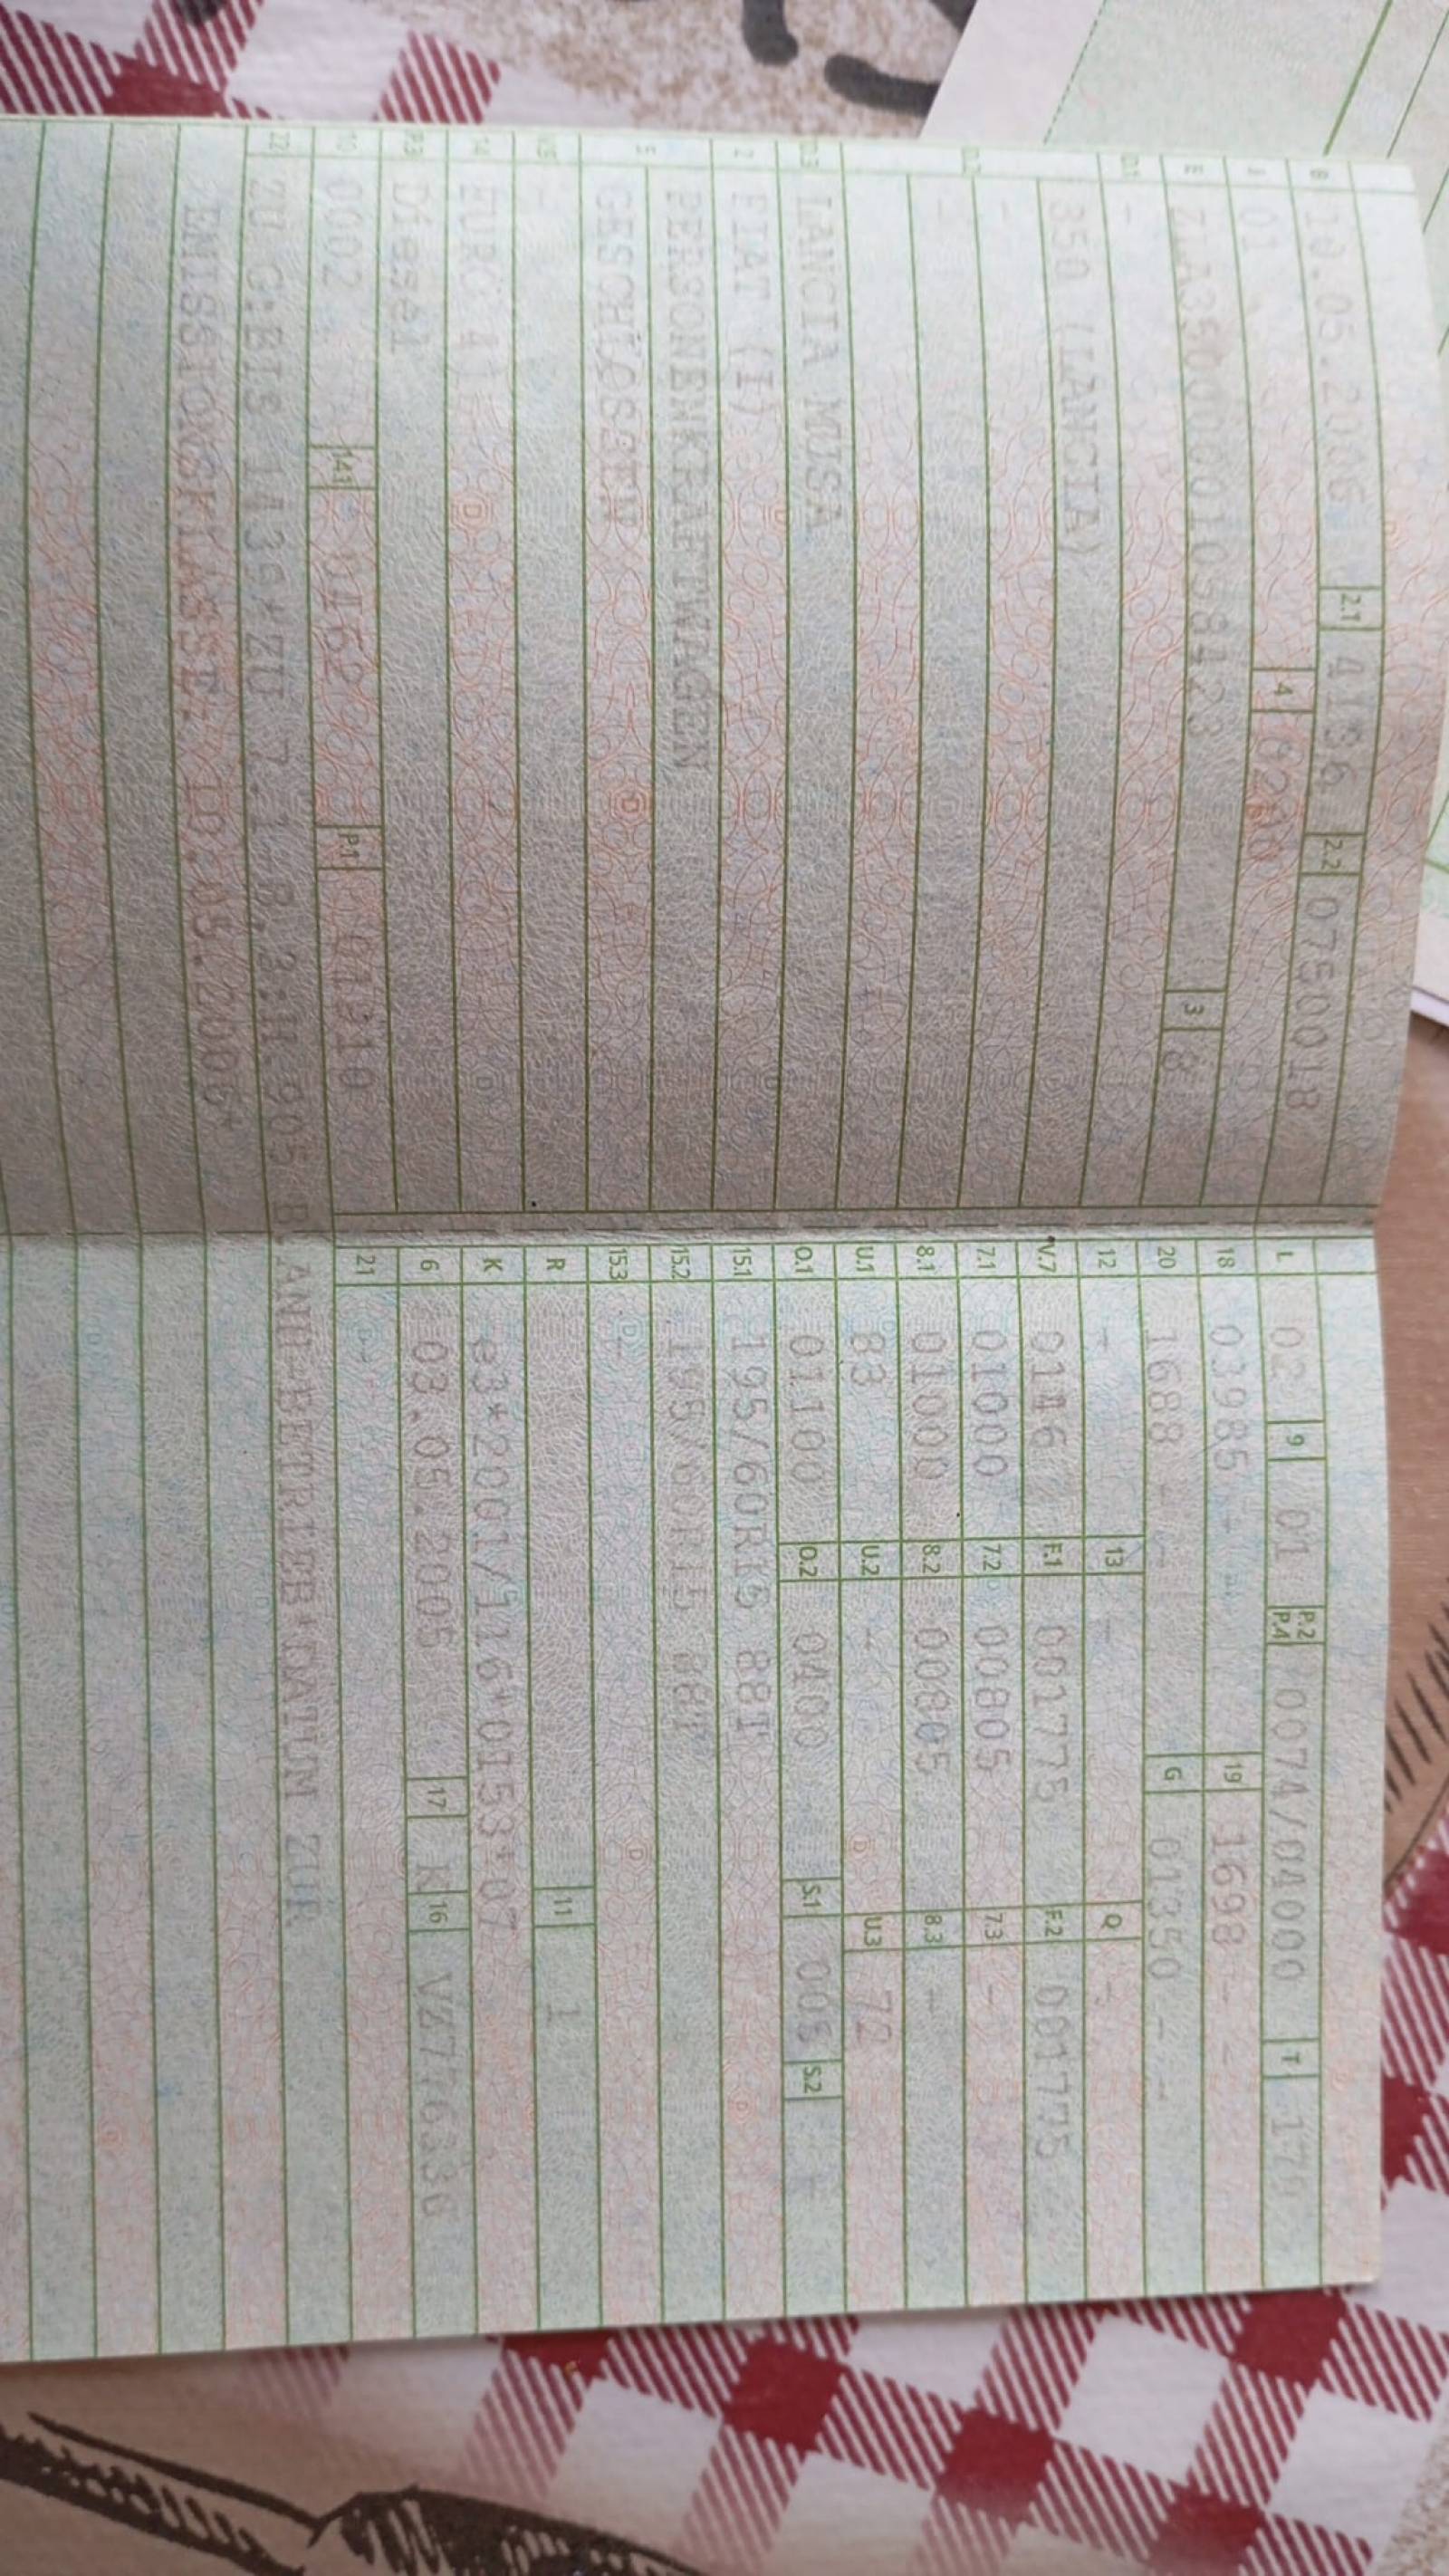 B 10.05.2006 2.1 4136 2.2 0750018
J 01 4 0200
E ZLA35000001058423 3 8
D.1 -
350 (LANCIA)
D.2 -
-
D.3 LANCIA MUSA
2 FIAT (I)
5 PERSONENKRAFTWAGEN
GESCHLOSSEN
V.9 -
14 EURO 4
P.3 Diesel
10 0002 14.1 0462 P.1 01910
22
EMISSIONSKLASSE: 10.05.2006*
L 02 9 01 P.2 P.4 0074/04000 T 176
18 03985 - - 19 1698 - -
20 1688 - - G 01350 - -
12 - 13 - Q -
V.7 0146 F.1 001775 F.2 001775
7.1 01000 7.2 00805 7.3 -
8.1 01000 8.2 00805 8.3 -
U.1 83 U.2 - U.3 72
O.1 01100 O.2 0400 S.1 005 S.2
15.1 195/60R15 88T
15.2 195/60R15 88T
15.3 -
R 11 1
K e3*2001/116*0158*07
6 03.05.2005 17 K 16 VZ776336
21 -
AND BETRIEB*DATUM ZUR